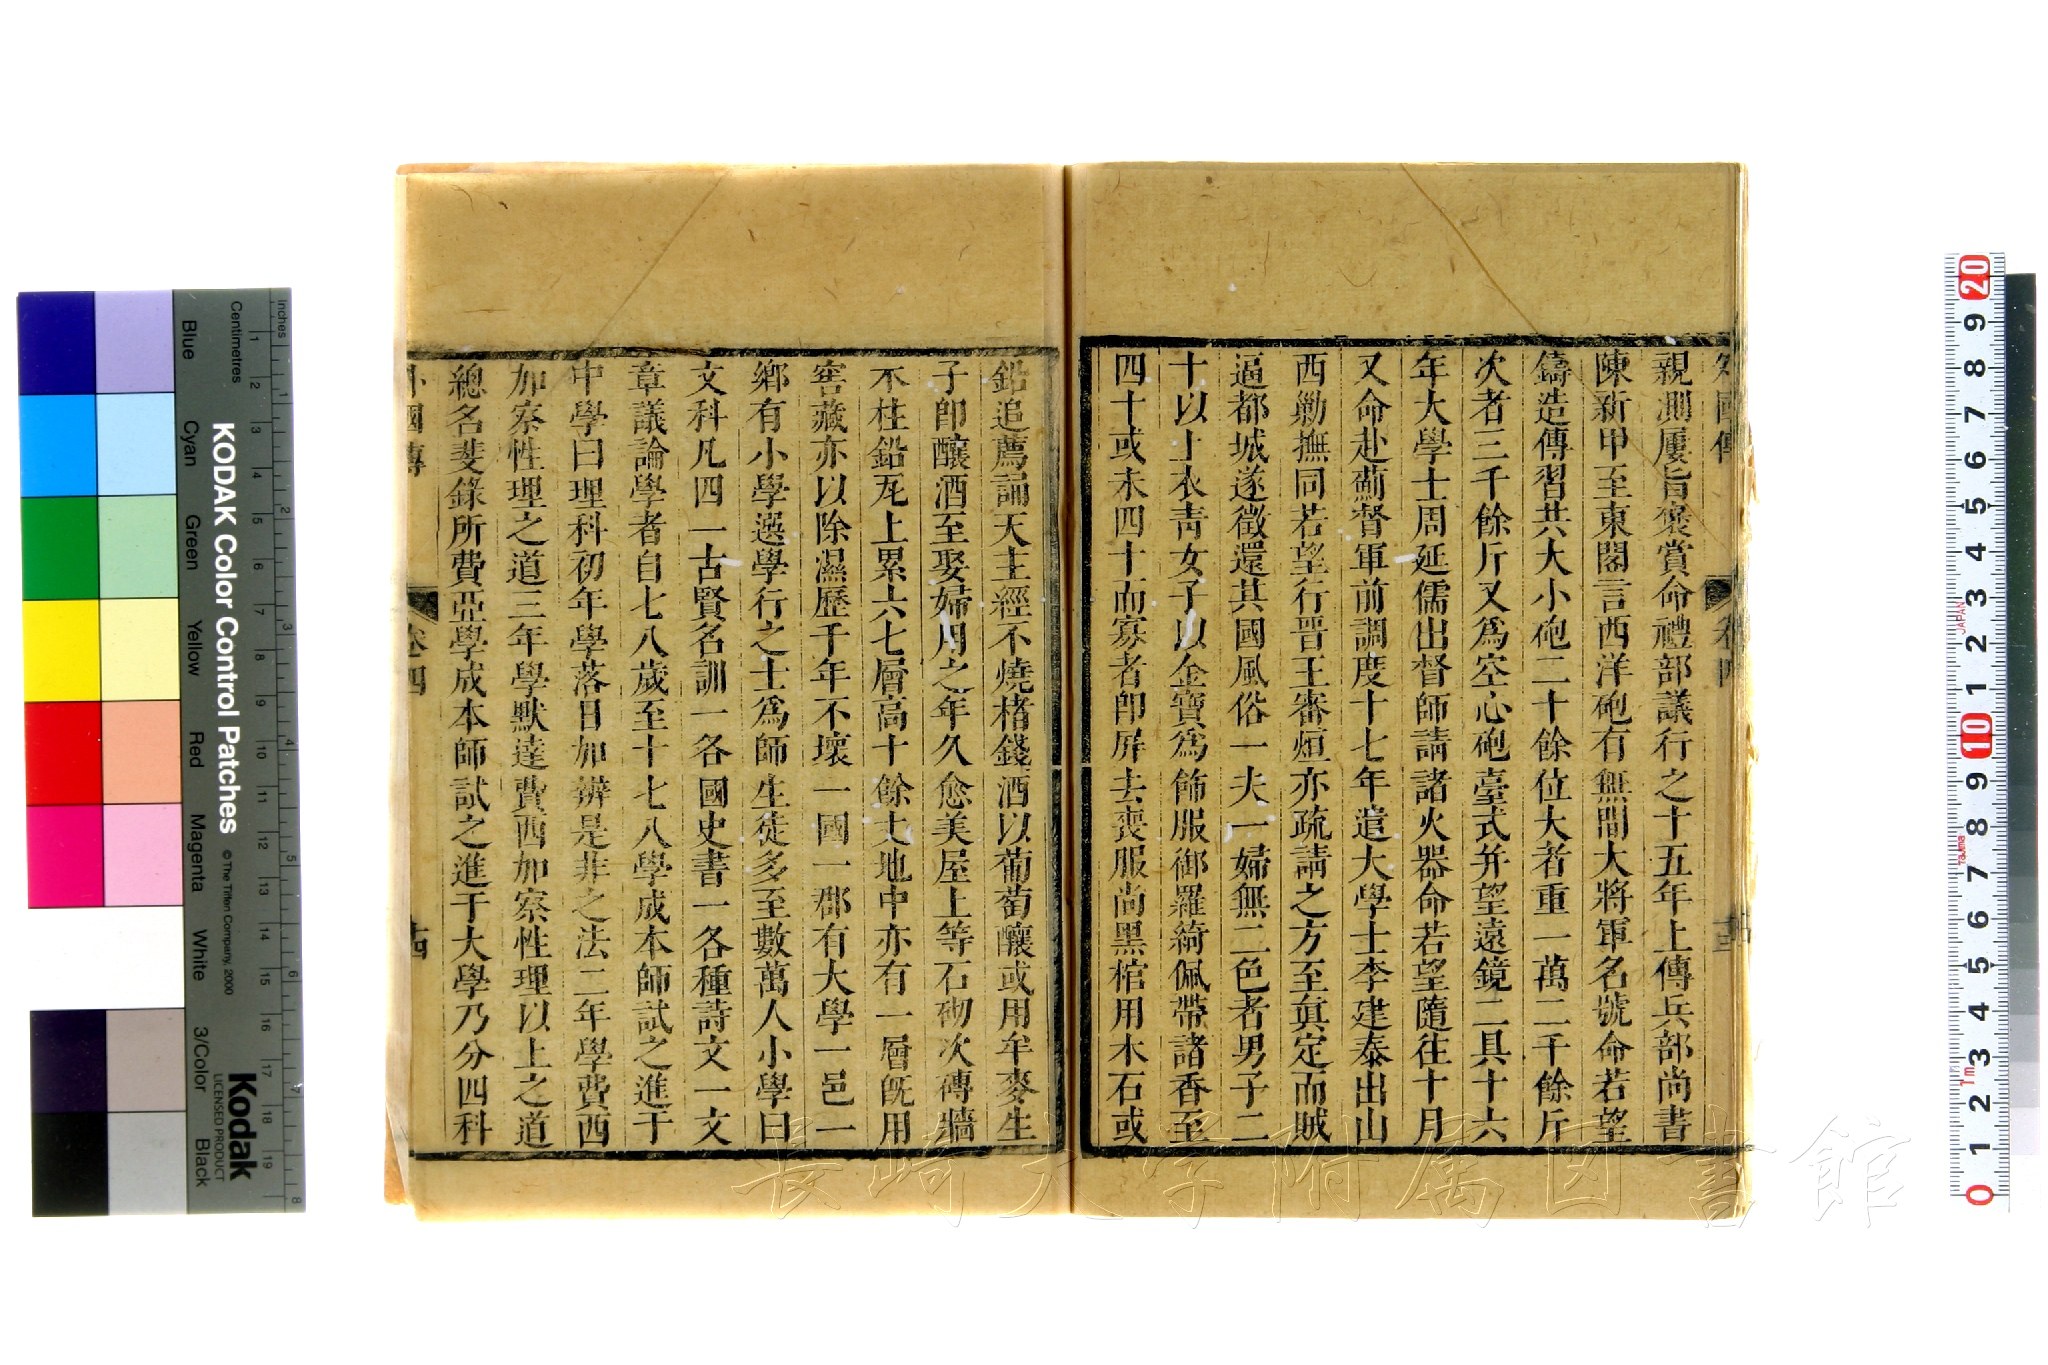 外國傳 卷四 十三
親測屢旨褒賞命禮部議行之十五年上傳兵部尚書
陳新甲至東閣言西洋砲有無間大將軍名號命若望
鑄造傳習共大小砲二十餘位大者重一萬二千餘斤
次者三千餘斤又爲空心砲臺式幷望遠鏡二具十六
年大學士周延儒出督師請諸火器命若望隨往十月
又命赴薊督軍前調度十七年遣大學士李建泰出山
西勦撫同若望行晋王審烜亦疏請之方至眞定而賊
逼都城遂徵還其國風俗一夫一婦無二色者男子二
十以上衣靑女子以金寶爲飾服御羅綺佩帶諸香至
四十或未四十而寡者卽屏去喪服尚黑棺用木石或
鉛追薦誦天主經不燒楮錢酒以葡萄釀或用牟麥生
子卽釀酒至娶婦用之年久愈美屋上等石砌次磚牆
木柱鉛瓦上累六七層高十餘丈地中亦有一層旣用
窖藏亦以除濕歷千年不壞一國一郡有大學一邑一
鄉有小學選學行之士爲師生徒多至數萬人小學曰
文科凡四一古賢名訓一各國史書一各種詩文一文
章議論學者自七八歲至十七八學成本師試之進于
中學曰理科初年學落日加辨是非之法二年學費西
加察性理之道三年學默達費西加察性理以上之道
總名斐錄所費亞學成本師試之進于大學乃分四科
外國傳 卷四 十四
KODAK Color Control Patches
© The Tiffen Company, 2000
Kodak
LICENSED PRODUCT
Inches
Centimetres
Blue
Cyan
Green
Yellow
Red
Magenta
White
3/Color
Black
長崎大学附属図書館